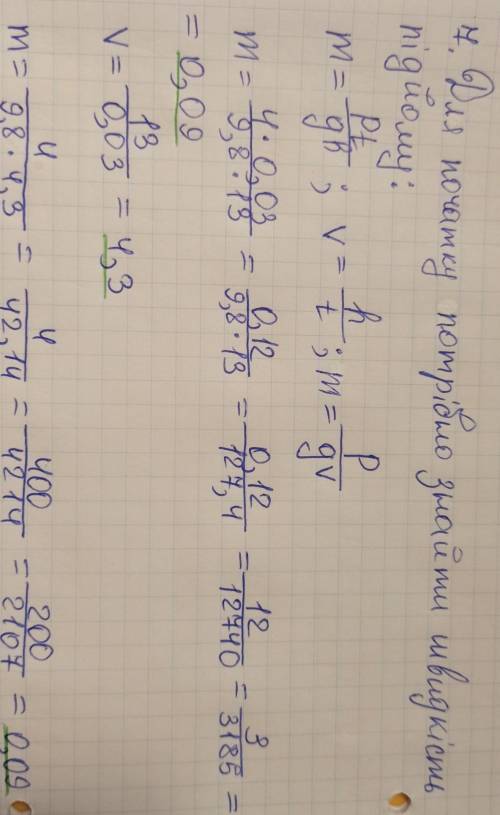 7. Для початку потрібно знайти швидкість
підйому:
m = pt/gh ; v = h/t ; m = p/gv
m = 4·0,03/9,8·13 = 0,12/9,8·13 = 0,12/127,4 = 12/12740 = 3/3185 =
= 0,09
v = 13/0,03 = 4,3
m = 4/9,8·4,3 = 4/42,14 = 400/4214 = 200/2107 = 0,09